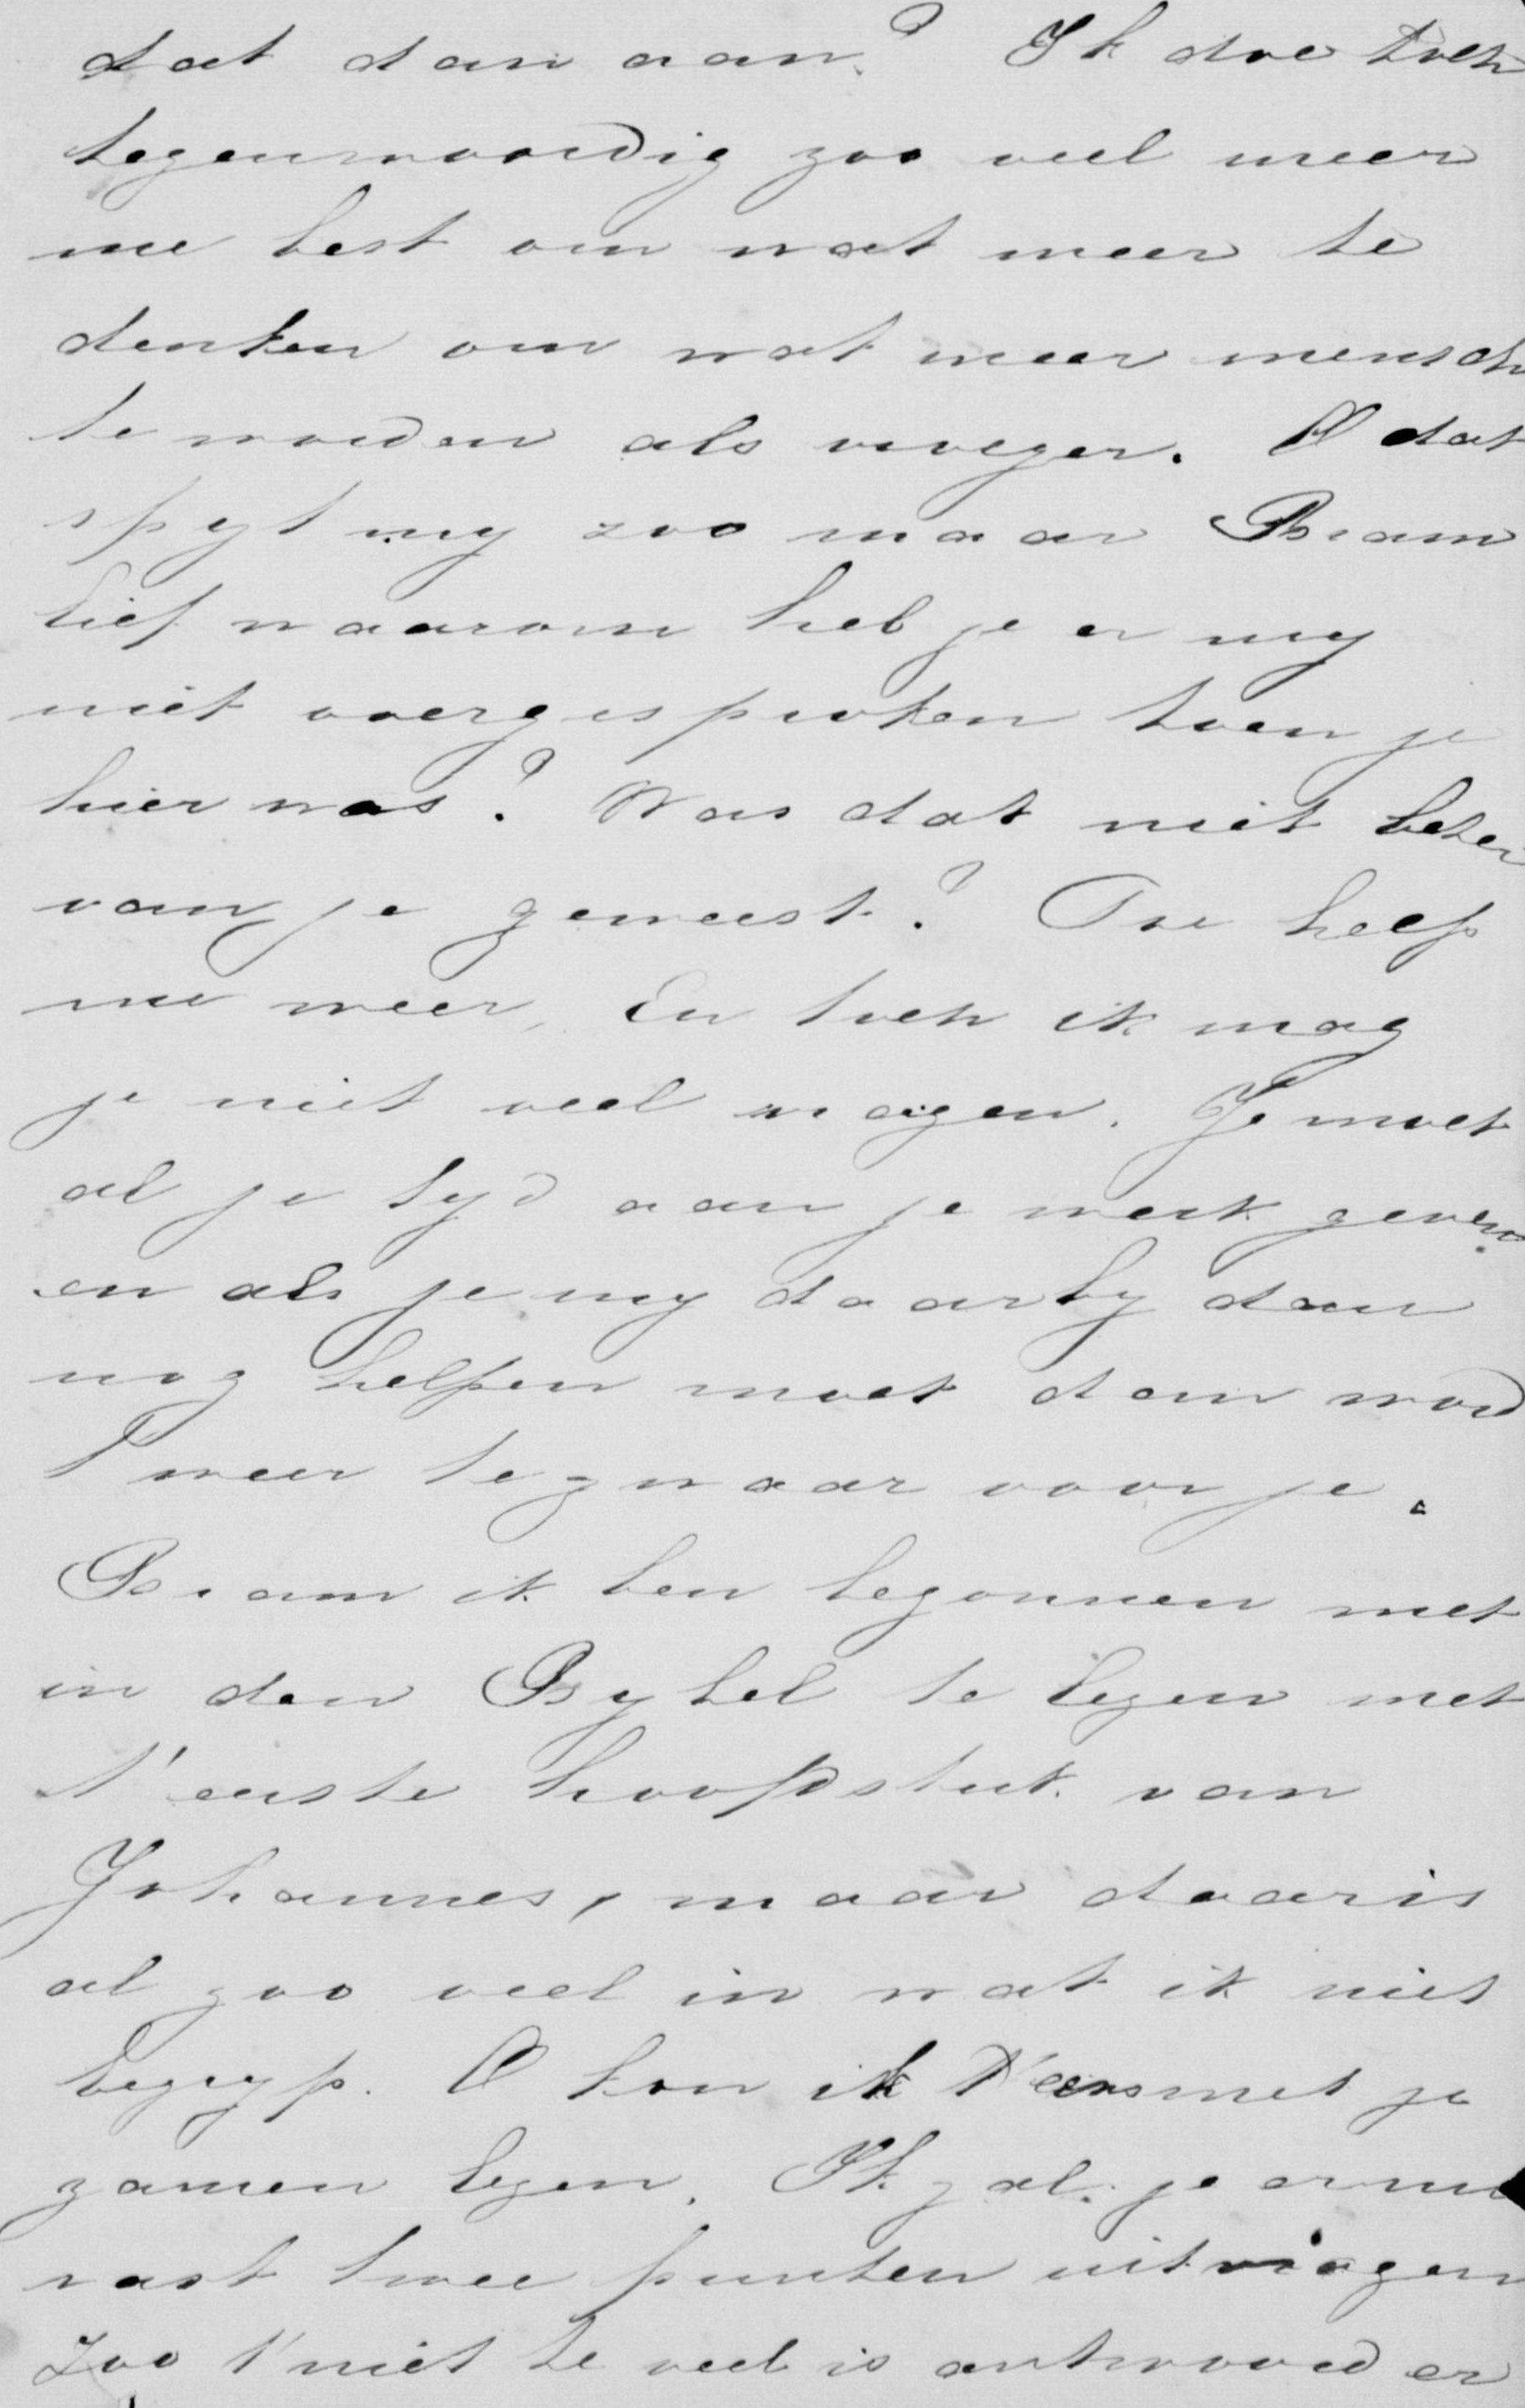 dat dan aan? Ik doe toch
tegenwoordig zoo veel meer
me best om wat meer te
denken om wat meer mensch
te worden als vroeger. O dat
spyt my zoo maar Bram
lief waarom heb je er my
niet overgesproken toen je
hier was? Was dat niet beter
van je geweest? Toe help
me weer, En toch ik mag
je niet veel vragen. Je moet
al je tyd aan je werk geven.
en als je my daarby dan
nog helpen moet dan word
t weer te zwaar voor je.
Bram ik ben begonnen met
in den Bybel te lezen met
t'eerste hoofdstuk van
Johannes, maar daaris
al zoo veel in wat ik niet
begryp. O kon ik t'eens met je
zamen lezen. Ik zal je er nu
vast twee punten uitvragen
zoo t'niet te veel is antwoord er